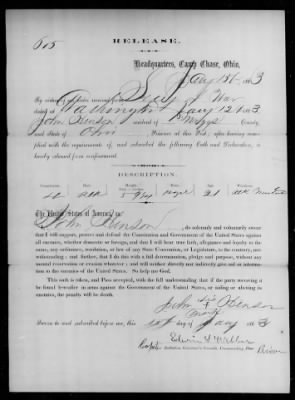 RELEASE.
Headquarters, Camp Chase, Ohio,
Jany 15th 1863
By virtue of an order received from Secy of War
dated at Washington Jany 12 1863
John Henson resident of Meigs County,
and State of Ohio, Prisoner at this Post, after having complied
with the requirements of, and subscribed the following Oath and Declaration, is
hereby released from confinement.
DESCRIPTION.
The United States of America,
I, John Henson, do solemnly and voluntarily swear
that I will support, protect and defend the Constitution and Government of the United States
against all enemies, whether domestic or foreign, and that I will bear true faith, allegiance and loyalty to the
same, any ordinance, resolution, or law of any State Convention, or Legislature, to the contrary, not-
withstanding; and further, that I do this with a full determination, pledge and purpose, without any
mental reservation or evasion whatever; and I will neither directly nor indirectly give aid or informa-
tion to the enemies of the United States. So help me God.
This oath is taken, and Pass accepted, with the full understanding that if the party receiving it
be found hereafter in arms against the Constitution and Government of the United States, or aiding or abetting its
enemies, the penalty will be death.
John Henson
mark
Sworn to and subscribed before me, this 15th day of Jany 1863
Edwin L Webber
Capt
Prison